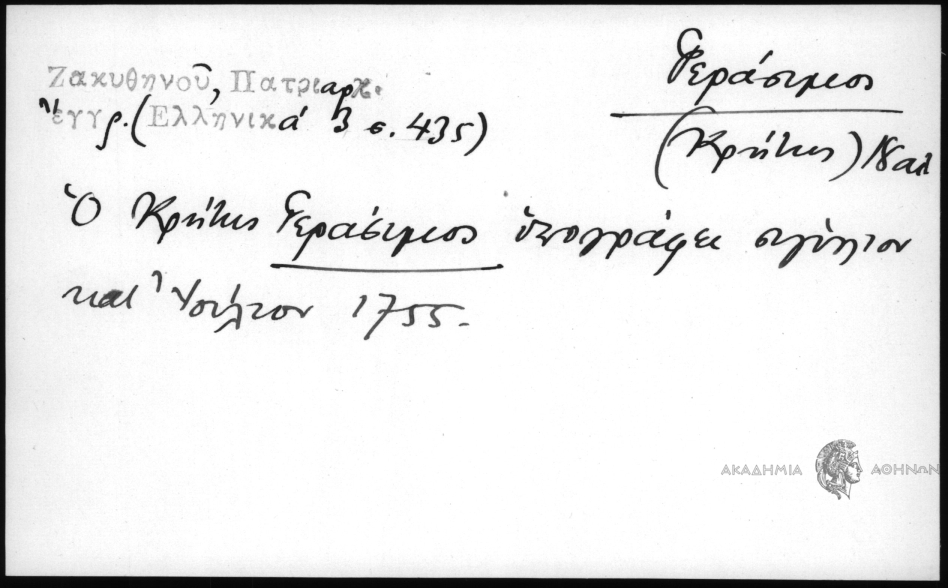 Ζακυθηνοῦ, Πατριαρχ.
ἔγγρ. (Ἑλληνικά 3 σ. 435)
Γεράσιμος
(Κρήτης) 18 αἰ
Ὁ Κρήτης Γεράσιμος ὑπογράφει σιγίλλιον
κατ' Ἰούλιον 1755.
ΑΚΑΔΗΜΙΑ ΑΘΗΝΩΝ